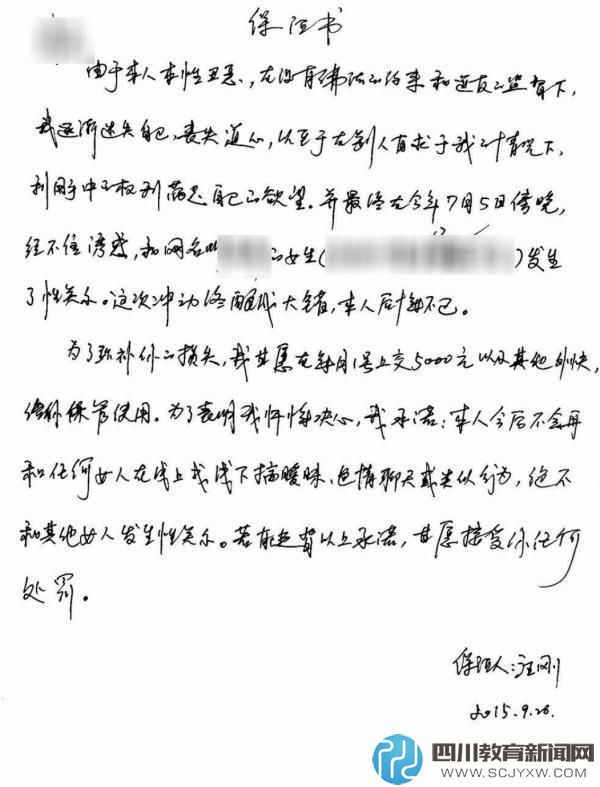 保证书
由于本人本性丑恶，在没有佛法的约束和道友的监督下，
我逐渐迷失自己，丧失道心，以至于在别人有求于我的情况下，
利用手中的权利满足自己的欲望。并最终在今年7月5日傍晚，
经不住诱惑，和网名叫 的女生( )发生
了性关系。这次冲动终酿成大错，本人后悔不已。
为了弥补你的损失，我甘愿在每月1号上交5000元以及其他外快，
给你保管使用。为了表明我忏悔决心，我承诺：本人今后不会再
和任何女人在线上或线下搞暧昧、色情聊天或类似行为，绝不
和其他女人发生性关系。若有违背以上承诺，甘愿接受你任何
处罚。
保证人：汪刚
2015.9.26.
四川教育新闻网
WWW.SCJYXW.COM